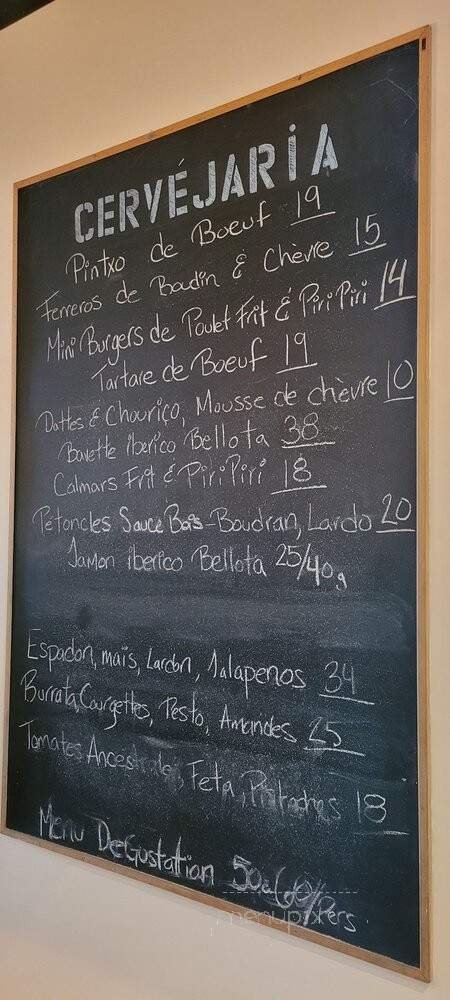 CERVÉJARIA
Pintxo de Boeuf 19
Ferreros de Boudin & Chèvre 15
Mini Burgers de Poulet Frit & Piri Piri 14
Tartare de Boeuf 19
Dattes & Chouriço, Mousse de chèvre 10
Bavette iberico Bellota 38
Calmars Frit & Piri Piri 18
Pétoncles Sauce Bois-Boudran, Lardo 20
Jamon iberico Bellota 25/40g
Espadon, maïs, Lardon, Jalapenos 34
Burrata, Courgettes, Pesto, Amandes 25
Tomates Ancestrales, Feta, Pistaches 18
Menu DeGustattian 50 à 60/Pers.
menupix